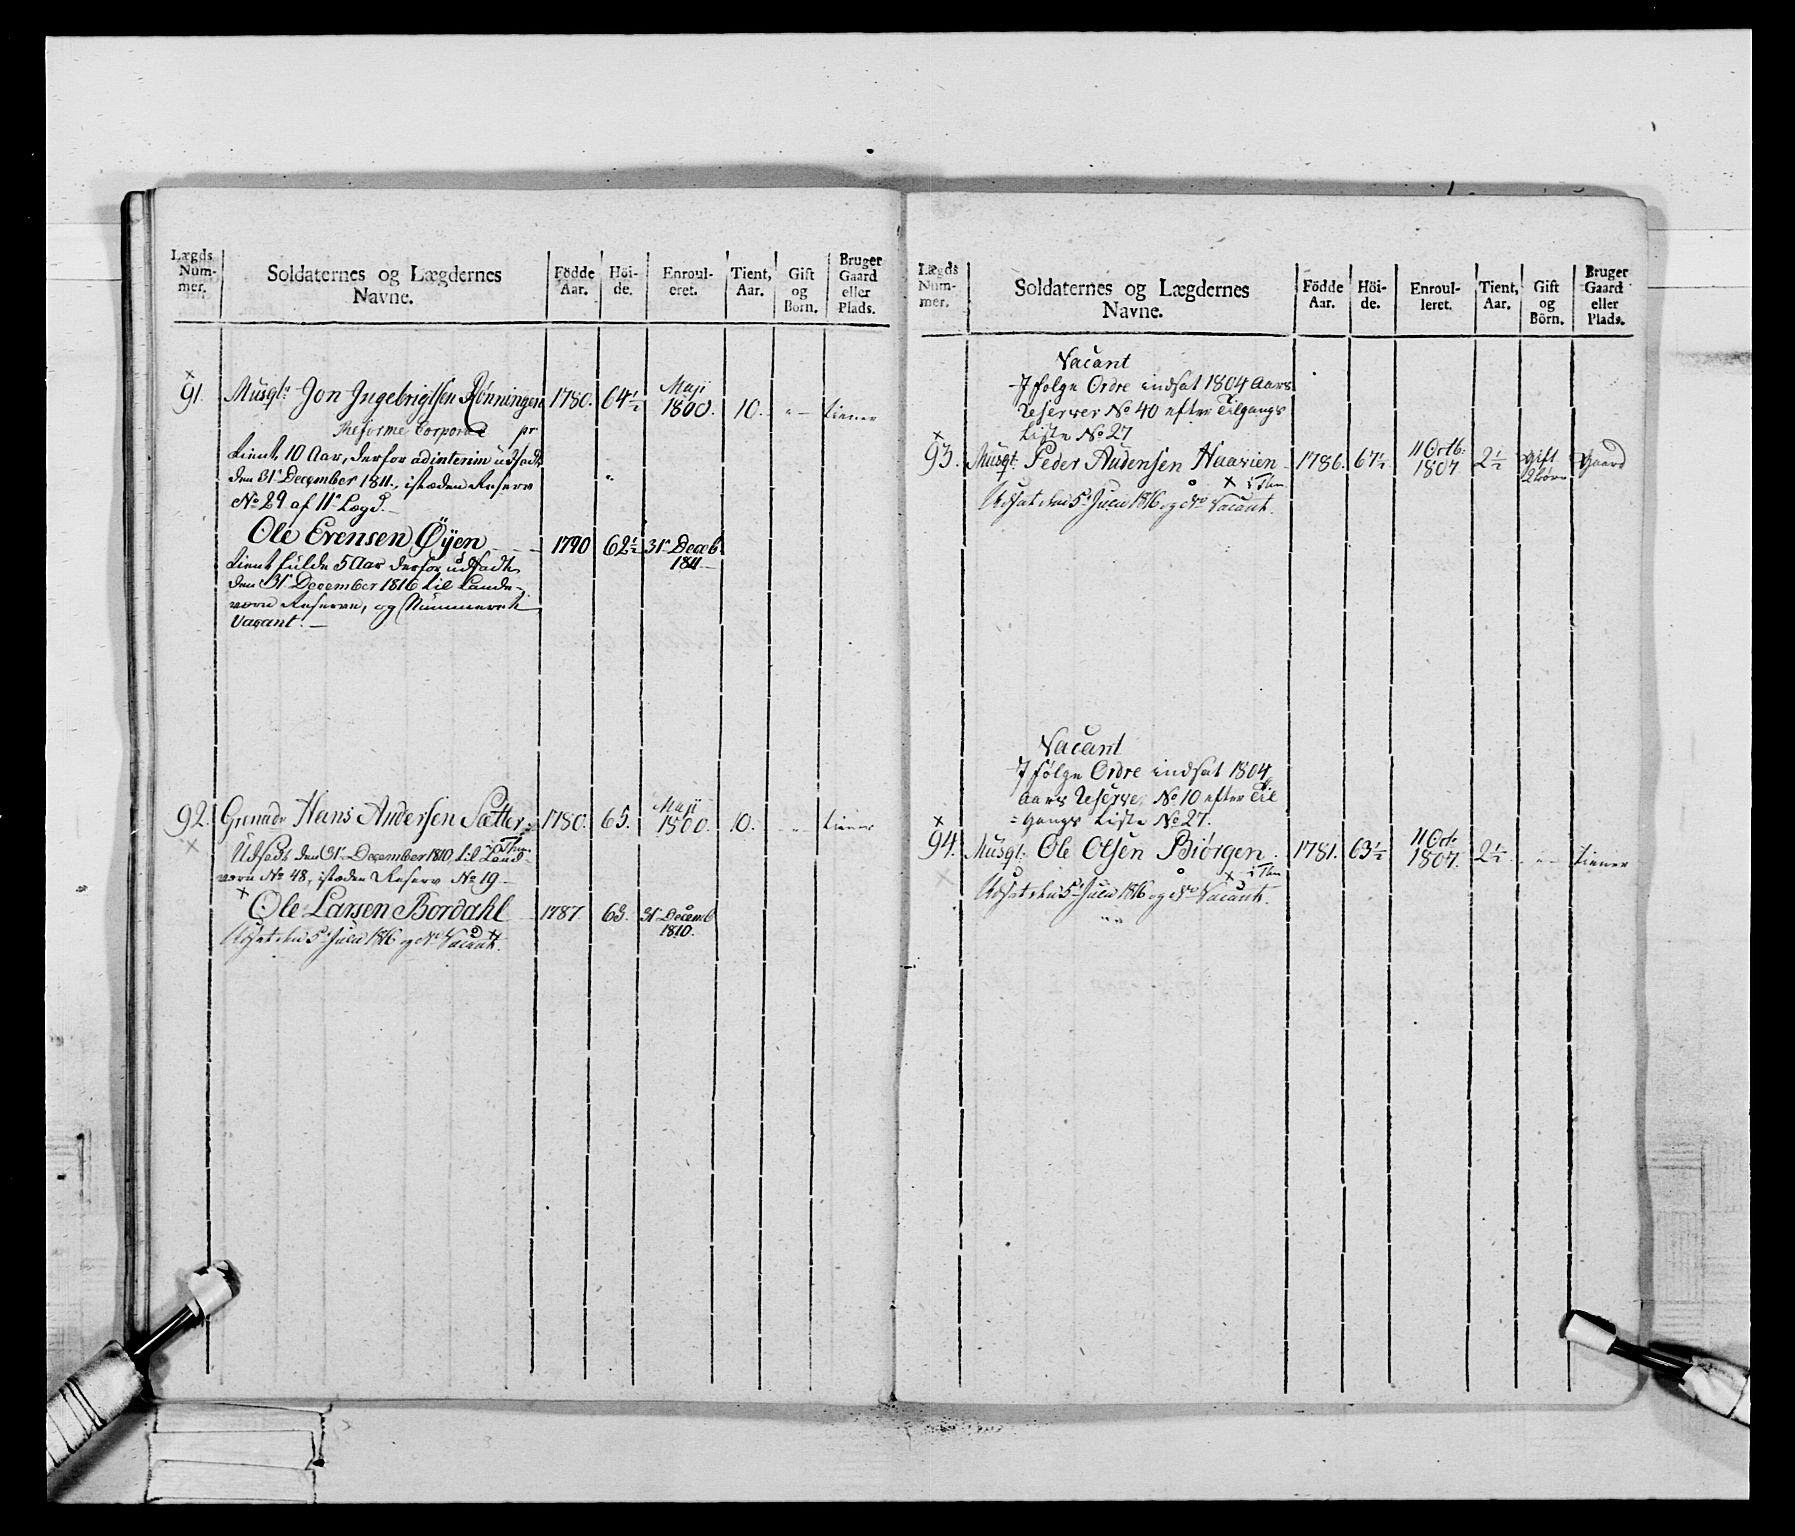 Lægds Num- mer. Soldaternes og Lægdernes Navne. Födde Aar. Höi- de. Enroul- eret. Tient, Aar. Gift og Börn. Bruger Gaard eller Plads.
×
91. Musqt: Jon Ingebrigtsen Rønningen 1780. 64½ Maji 1800. 10. „ – tiener
Reforme Corporal pr
tient 10 Aar, derfor ad interim udsadt
den 31' December 1811, istæden Reserv
No 29 af 11' Lægd.
Ole Evensen Øyen 1790 62½ 31' Deceb 1811
tient fulde 5 Aar derfor udsadt
den 31' December 1816 til Lande-
værn Reserve, og Nummeret
Vacant.
92. Grenadr Hans Andersen Sætter 1780. 65. Maji 1800. 10. „ tiener
×
Udsadt den 31' December 1810 til Land-
værn No 48, istæden Reserv No 19
× Ole Larsen Bordahl 1787 63. 31' Decemb 1810.
Udsat den 5' Juli 1816 og No Vacant.
Lægds Num- mer. Soldaternes og Lægdernes Navne. Födde Aar. Höi- de. Enroul- leret. Tient, Aar. Gift og Börn. Bruger Gaard eller Plads.
Vacant
Ifølge Ordre indsat 1804 Aars
Reserver No 40 efter Tilgangs
Liste No 27
×
93. Musqt: Peder Audensen Haavien 1786. 67½ 11 Octb: 1807 2½ gift 2 børn Gaard
Udsat den 5' Juli 1816 og No Vacant.
Vacant
Ifølge Ordre indsat 1804
Aars Reserve, No 10 efter Til
= gangs Liste No 27.
×
94. Musqt: Ole Olsen Biörgen. 1781. 63½ 11 Oct. 1807. 2½ „ – tiener
×
Udsat den 5' Juli 1816 og No Vacant.